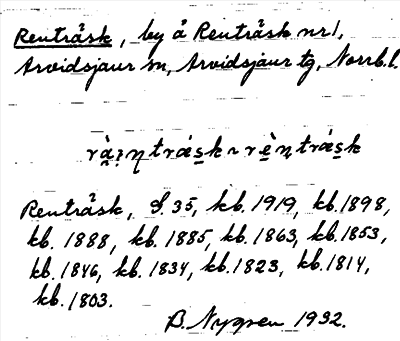 Renträsk, by å Renträsk nr 1,
Arvidsjaur sn, Arvidsjaur tg, Norrb. l.
Renträsk, S. 35, kb. 1919, kb. 1898,
kb. 1888, kb. 1885, kb. 1863, kb. 1853,
kb. 1846, kb. 1834, kb. 1823, kb. 1814,
kb. 1803.
B. Nygren 1932.